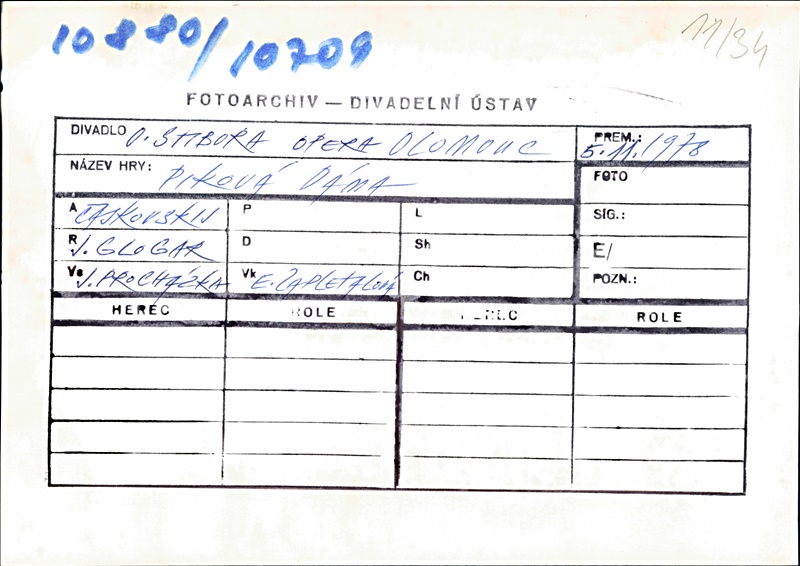 10880/10709
11/34
FOTOARCHIV — DIVADELNÍ ÚSTAV
DIVADLO O. STIBORA OPERA OLOMOUC
PREM.: 5.11.1978
NÁZEV HRY: PIKOVÁ DÁMA
FOTO
A ČAJKOVSKIJ P L
SIG.:
R J. GLOGAR D Sh
E/
Vs J. PROCHÁZKA Vk E. ZAPLETALOVÁ Ch
POZN.:
HEREC ROLE HEREC ROLE